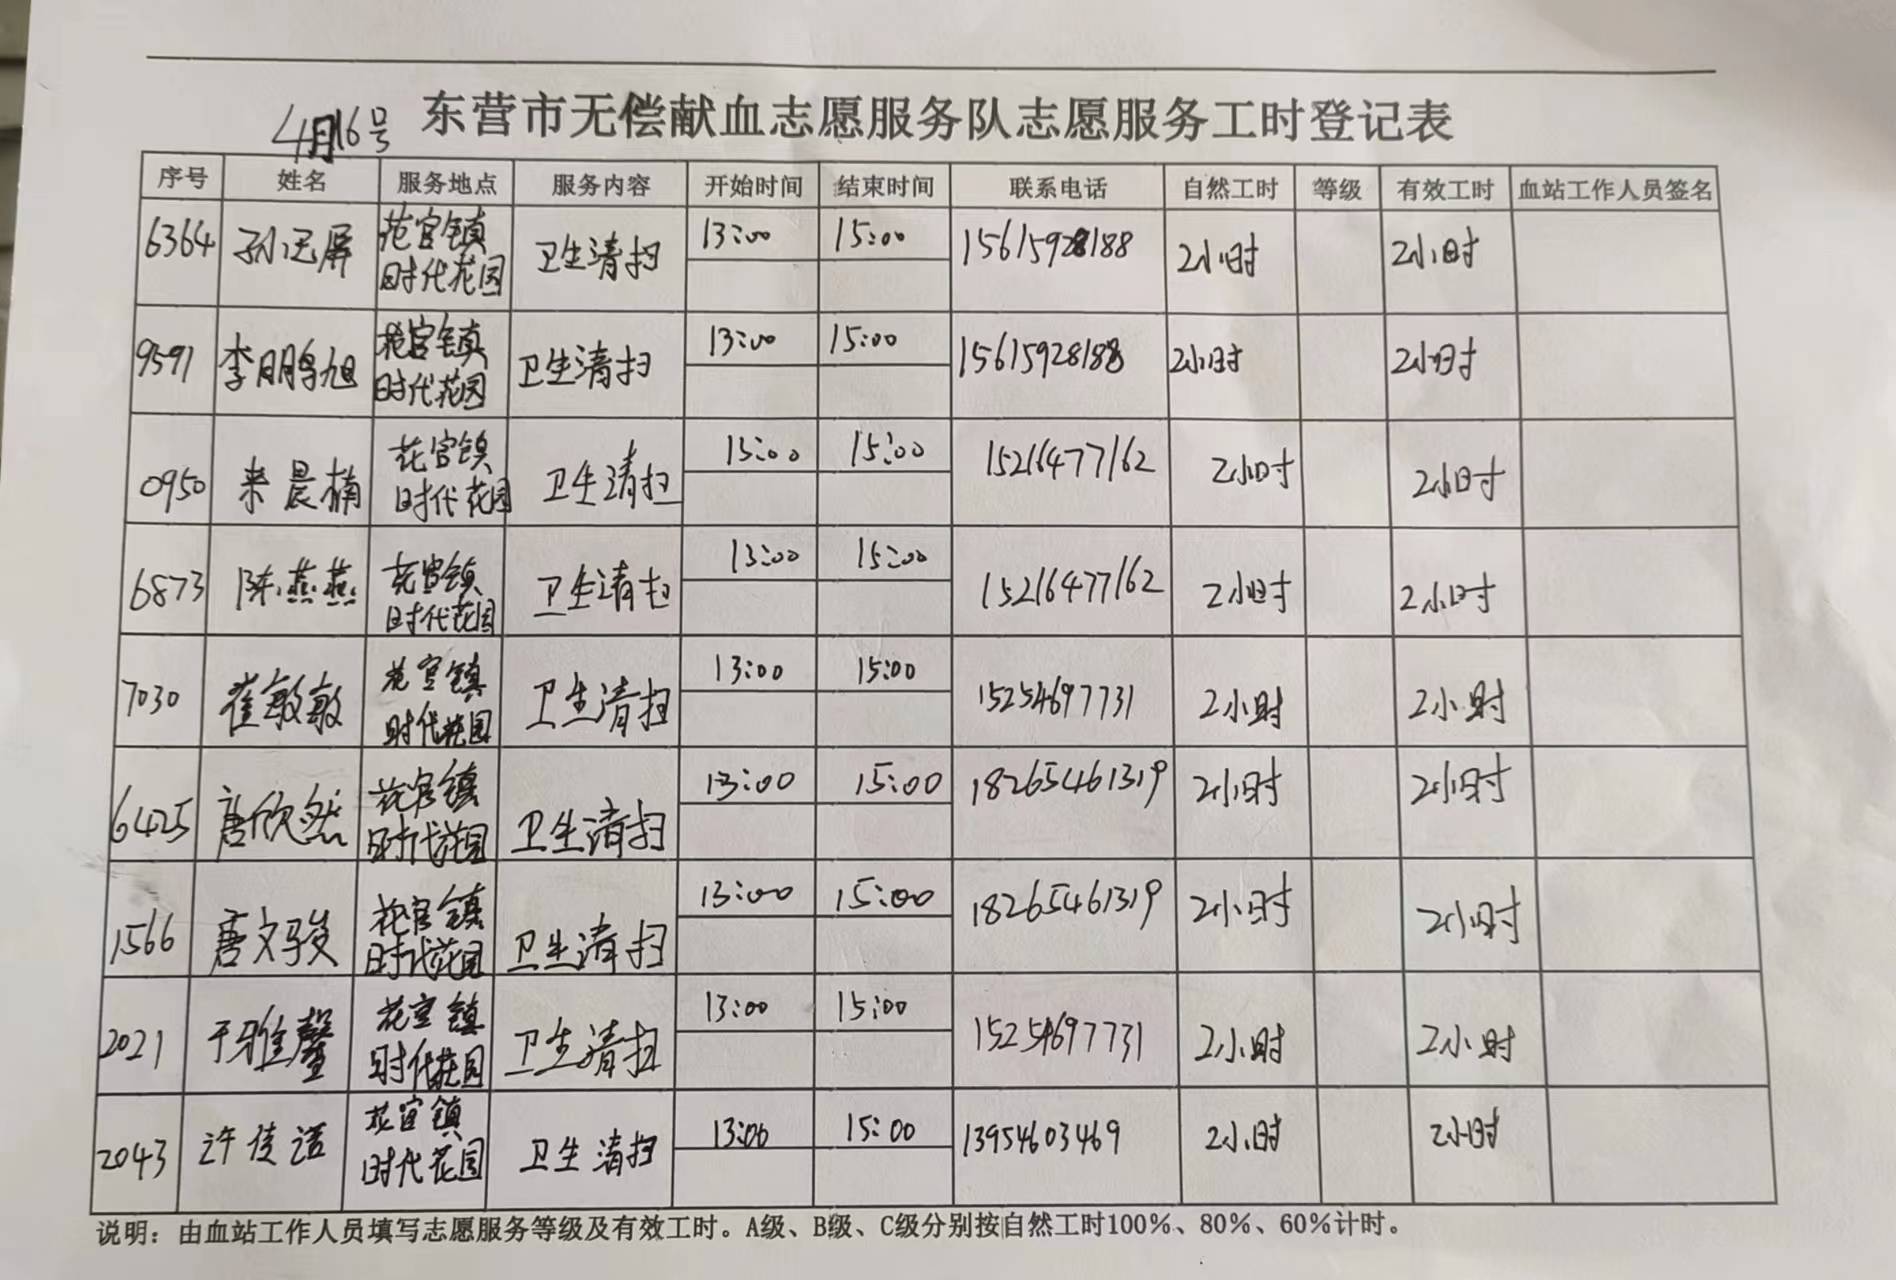 4月16号 东营市无偿献血志愿服务队志愿服务工时登记表
序号 姓名 服务地点 服务内容 开始时间 结束时间 联系电话 自然工时 等级 有效工时 血站工作人员签名
6364 孙屏 花官镇 卫生清扫 13:00 15:00 15615928188 2小时 2小时
时代花园
9591 李鹏旭 花官镇 卫生清扫 13:00 15:00 15615928188 2小时 2小时
时代花园
0950 来晨楠 花官镇 卫生清扫 13:00 15:00 15216477162 2小时 2小时
时代花园
6873 陈燕燕 花官镇 卫生清扫 13:00 15:00 15216477162 2小时 2小时
时代花园
7030 崔敏敏 花官镇 卫生清扫 13:00 15:00 15254697731 2小时 2小时
时代花园
6425 唐欣然 花官镇 卫生清扫 13:00 15:00 18265461319 2小时 2小时
时代花园
1566 唐文骏 花官镇 卫生清扫 13:00 15:00 18265461319 2小时 2小时
时代花园
2021 于雅馨 花官镇 卫生清扫 13:00 15:00 15254697731 2小时 2小时
时代花园
2043 许佳诺 花官镇 卫生清扫 13:00 15:00 13954603469 2小时 2小时
时代花园
说明：由血站工作人员填写志愿服务等级及有效工时。A级、B级、C级分别按自然工时100%、80%、60%计时。